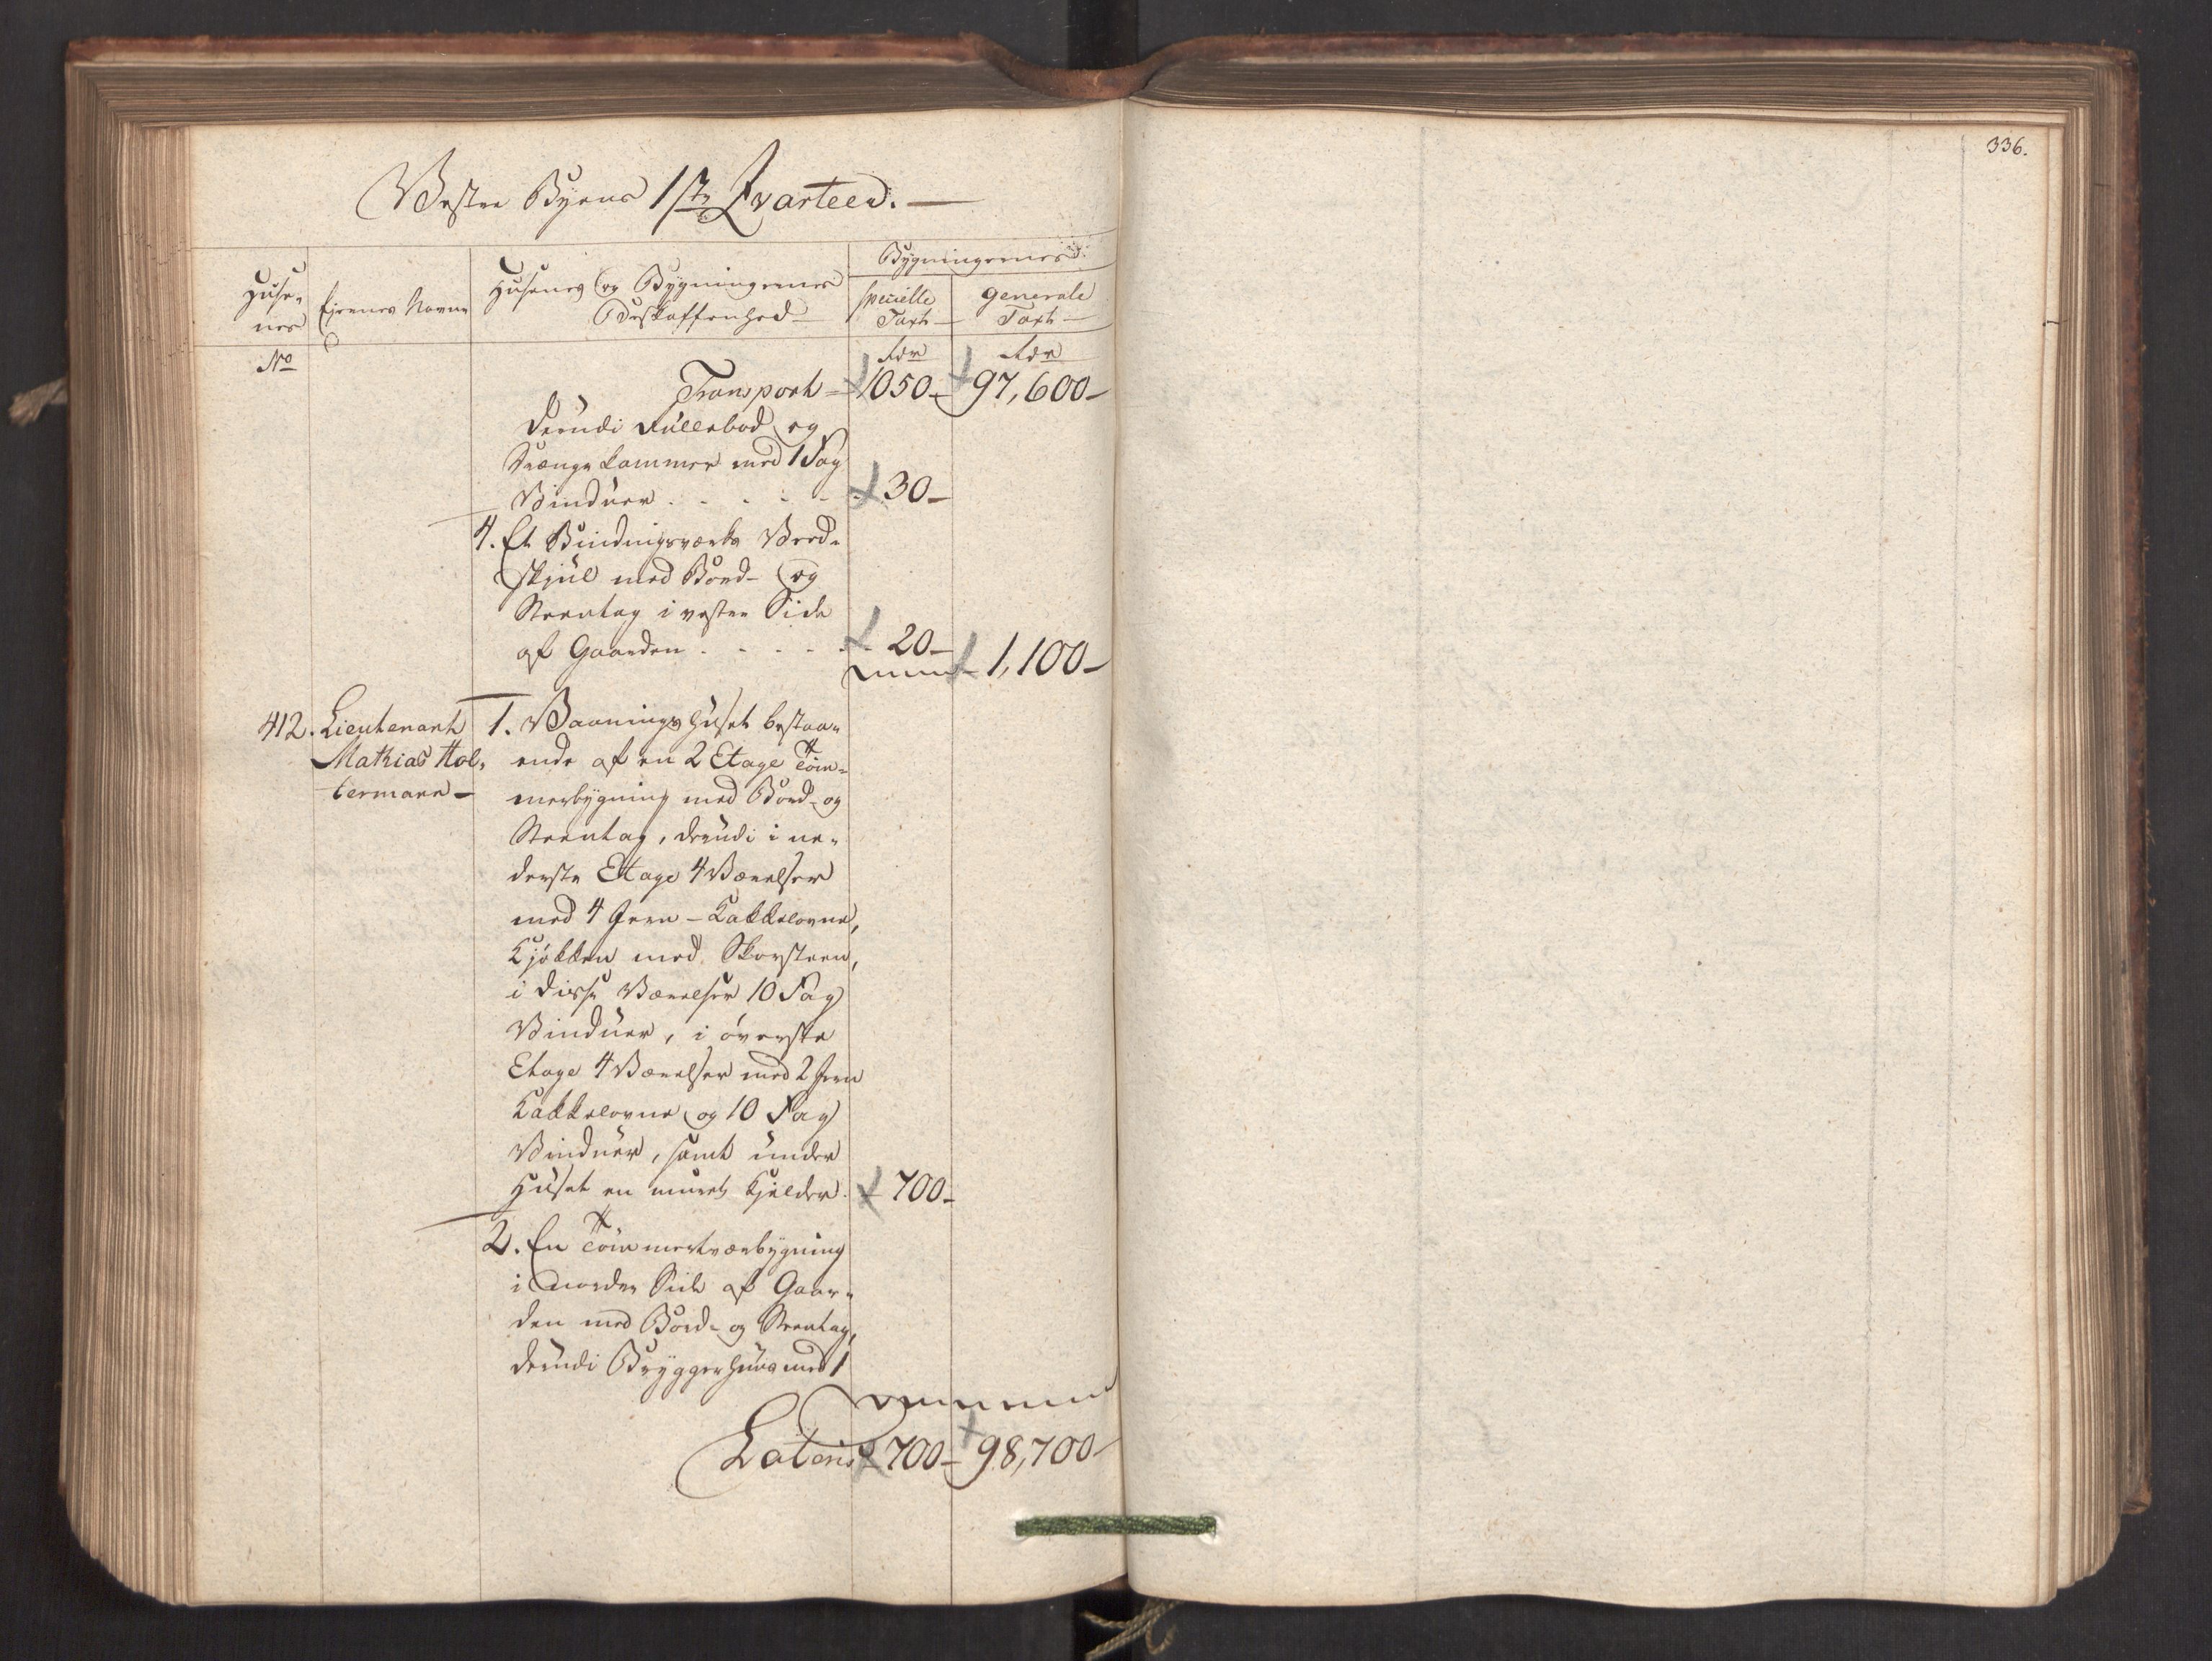 336.
Vestre Byens 1ste Qvarteer.
Husenes
Eiernes Navne
Husenes og Bygningernes Beskaffenhed
Bygningernes
specielle Taxt
generale Taxt
No
Rdr
Rdr
Transport 1050 - 97,600 -
derudi Rullebod og
Svenge kammer med 1 Fag
Vinduer . . . . . 30 -
4. Et Bindingsværks Veed-
skiul med Bord- og
Steentag i vestre Side
af Gaarden . . . . . 20 -
1,100 -
412. Lieutenant 1. Vaaningshuset bestaa-
Mathias Hol- ende af en 2 Etage Töm-
termann - merbygning med Bord- og
Steentag, derudi i ne-
derste Etage 4 Værelser
med 4 Jern-Kakkelovne,
Kjökken med Skorsteen,
i disse Værelser 10 Fag
Vinduer, i överste
Etage 4 Værelser med 2 Jern
Kakkelovne og 10 Fag
Vinduer, samt under
Huset en muret Kjelder. 700 -
2. En Tömmertværbygning
i nordre Side af Gaar-
den med Bord- og Steentag,
derudi Bryggerhuus med 1
Lateris 700 - 98,700 -